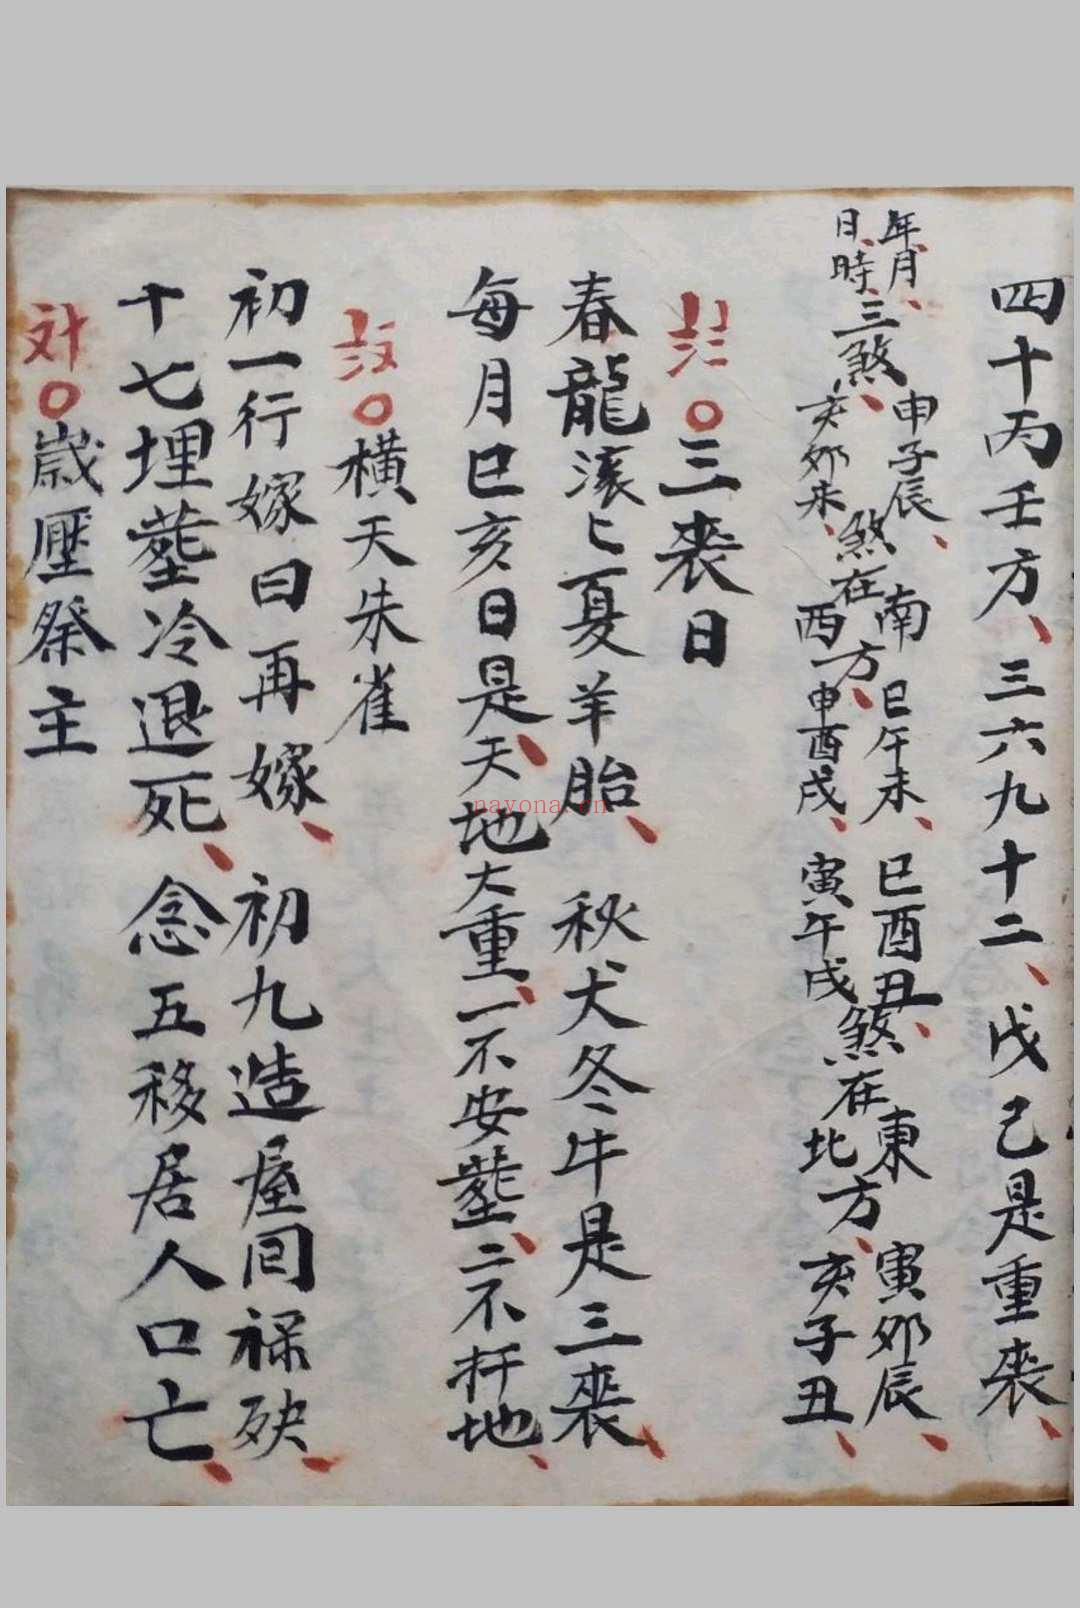 四十丙壬方、三六九十二、戊己是重喪、
年、月、日、時、三煞、
申子辰、煞在南方、巳午未、
亥卯未、煞在西方、申酉戌、
巳酉丑、煞在東方、寅卯辰、
寅午戌煞在北方、亥子丑、
〇三喪日
春龍滾匕夏羊胎、秋犬冬牛是三喪、
每月巳亥日是、天地大重、一不安塟、二不扞地、
〇横天朱雀
初一行嫁曰再嫁、初九造屋囬禄殃、
十七埋塟冷退死、念五移居人口亡、
〇歲壓祭主
nayona.cn